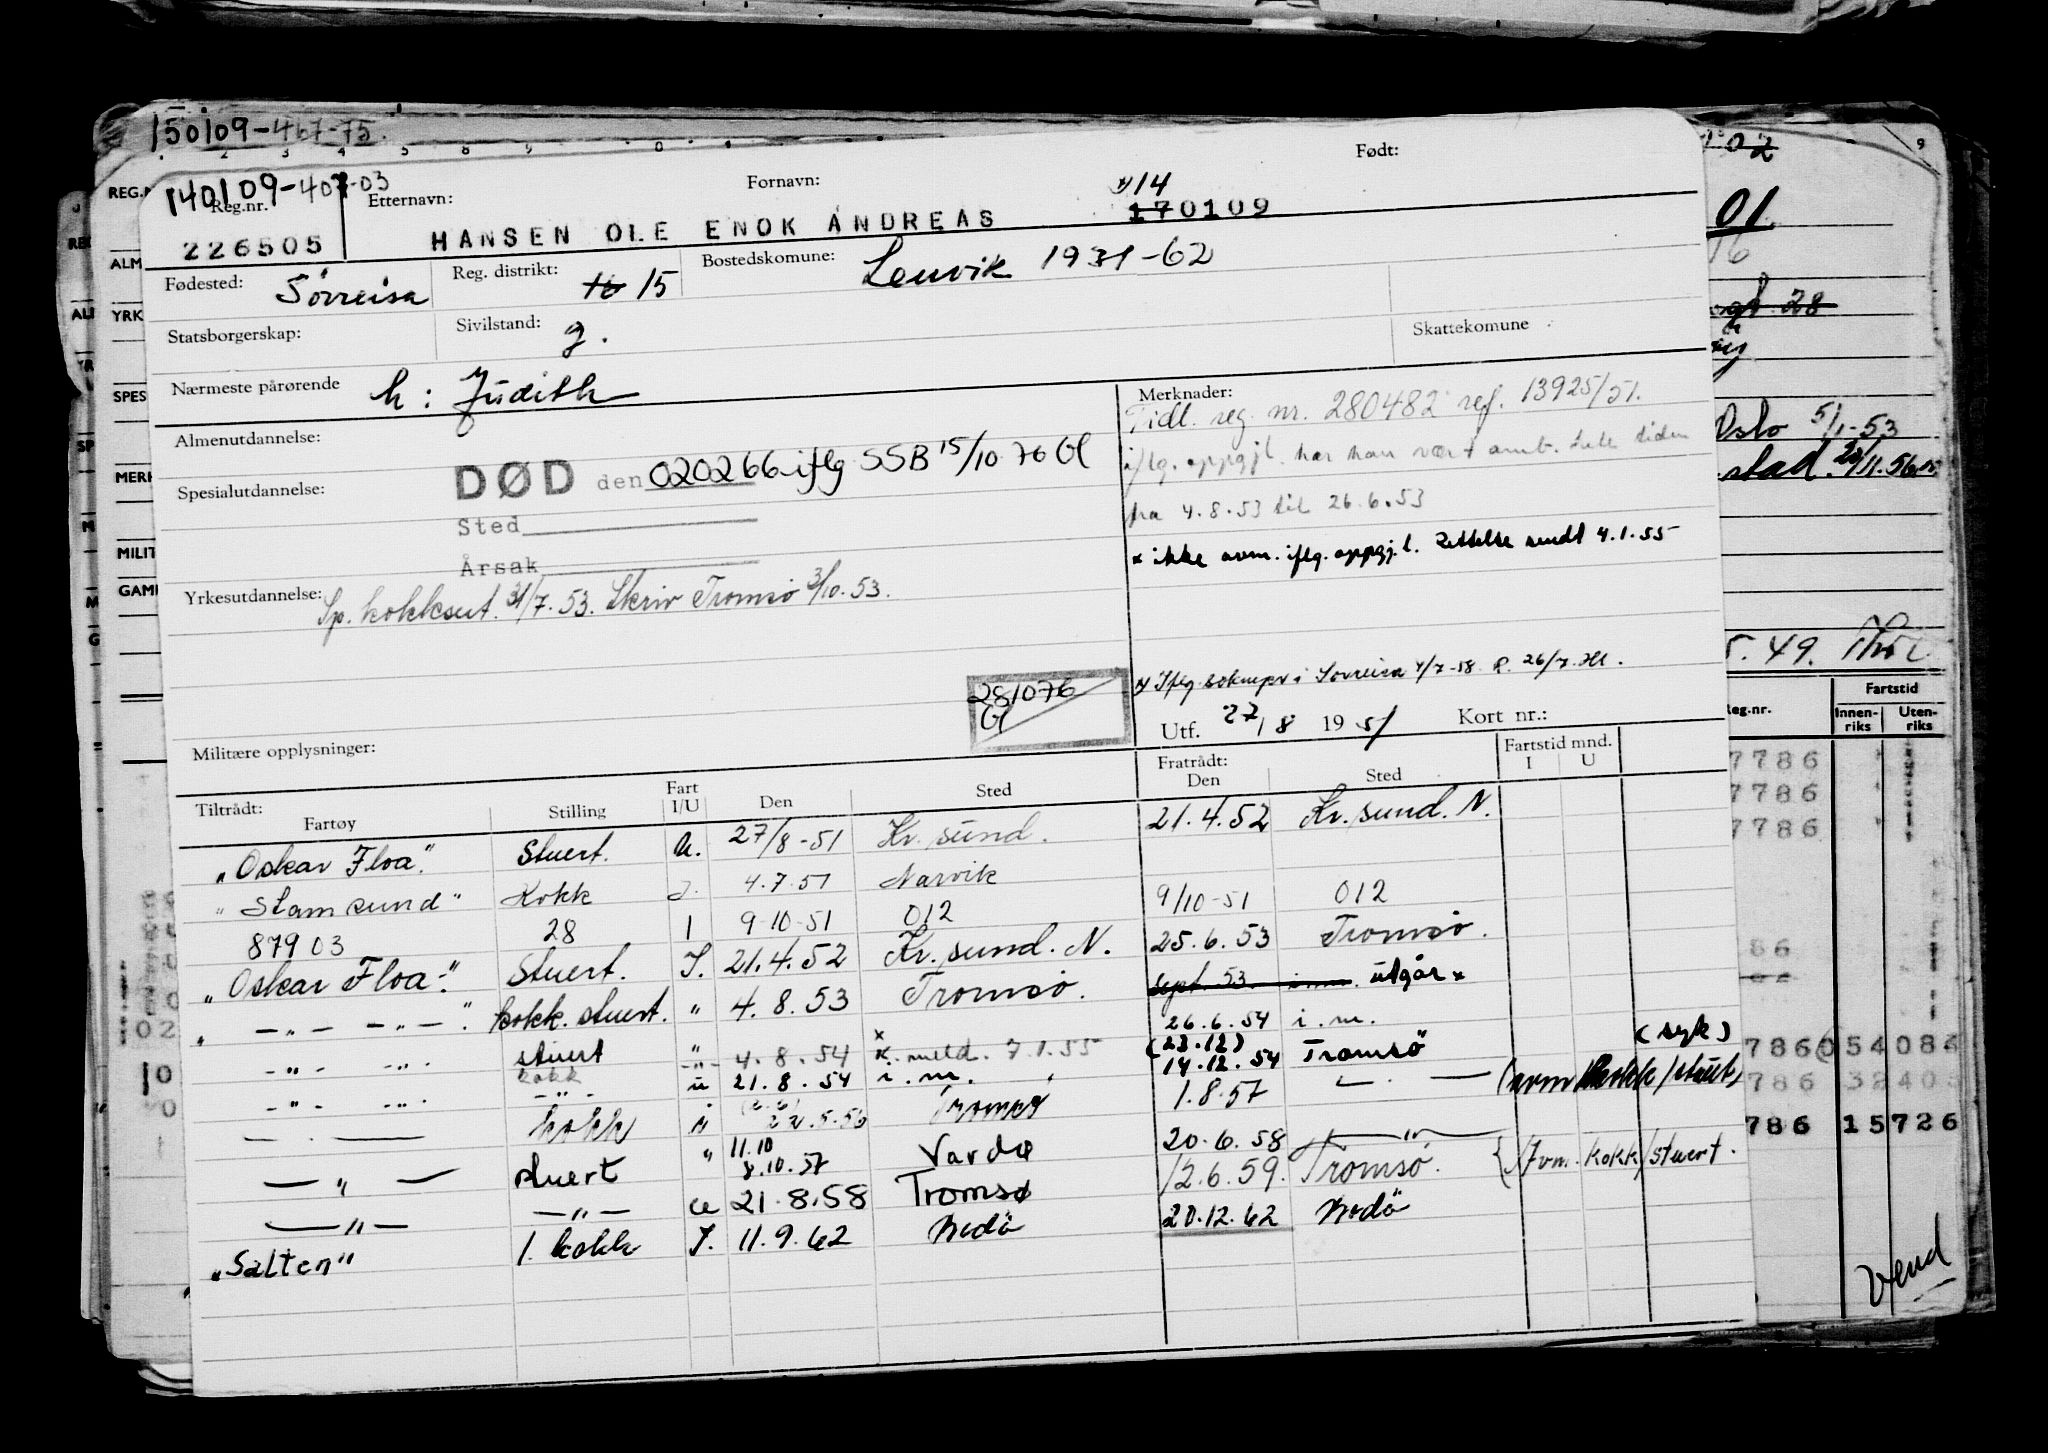 150109-467-75
140109-407-03
Reg.nr.
Etternavn:
Fornavn:
Født:
226505
HANSEN OLE ENOK ANDREAS
x) 14
170109
Fødested: Sörreisa
Reg. distrikt: 16 15
Bostedskomune: Lenvik 1931-62
Statsborgerskap:
Sivilstand: g.
Skattekomune
Nærmeste pårørende h: Judith
Merknader:
Tidl. reg. nr. 280482 ref. 13925/51.
iflg. oppgj.l. har han vært omb. hele tiden
fra 4.8.53 til 26.6.53
* ikke avm. iflg. oppgj.l. Rettelse sendt 4.1.55
Almenutdannelse:
DØD den 020266 iflg SSB 15/10 76 Gl
Spesialutdannelse:
Sted
Årsak
Yrkesutdannelse: Sp. kokksut. 31/7.53. Skriv Tromsö 3/10.53.
281076
Gl
x) Iflg. soknepr i Sörreisa 4/7-58 P. 26/7.
Utf. 27/8 1951 Kort nr.:
Militære opplysninger:
Tiltrådt:
Fartøy
Stilling
Fart
I/U
Den
Sted
Fratrådt:
Den
Sted
Fartstid mnd.
I U
"Oskar Floa" Stuert. u. 27/8-51 Kr. sund. 21.4.52 Kr. sund. N.
"Stamsund" Kokk J. 4.7.51 Narvik 9/10-51 012
87903 28 1 9-10-51 012
"Oskar Floa" Stuert. J. 21.4.52 Kr. sund. N. 25.6.53 Tromsö.
" — " — — " — " kokk. stuert. " 4.8.53 Tromsö. sept. 53 i.m. utgår x
26.6.54 i.m.
- " - - " - stuert " 4.8.54 x K. meld. 7.1.55 (23.12) 14.12.54 Tromsö (syk)
- " - - " - kokk - " - u 21.8.54 i.m. 1.8.57 — " — (avm kokk/stuert)
— . — kokk " 22.5.56 Tromsö
— " — stuert " 11.10 8.10.57 Vardø 20.6.58 — " —
— " — — " — u 21.8.58 Tromsø 12.6.59. Tromsö. { avm. kokk/stuert.
"Salten" 1. kokk J. 11.9.62 Bodö 20.12.62 Bodö
02
9
01
16
28
Oslo 5/1-53
stad 20/11.56
5.49.
Reg.nr.
Fartstid
Innen-
riks
Uten-
riks
7786
7786
7786
86
786 054084
786
786 15726
Vend
REG.N
ALM
YRK
SPES
MERK
MILIT
GAML